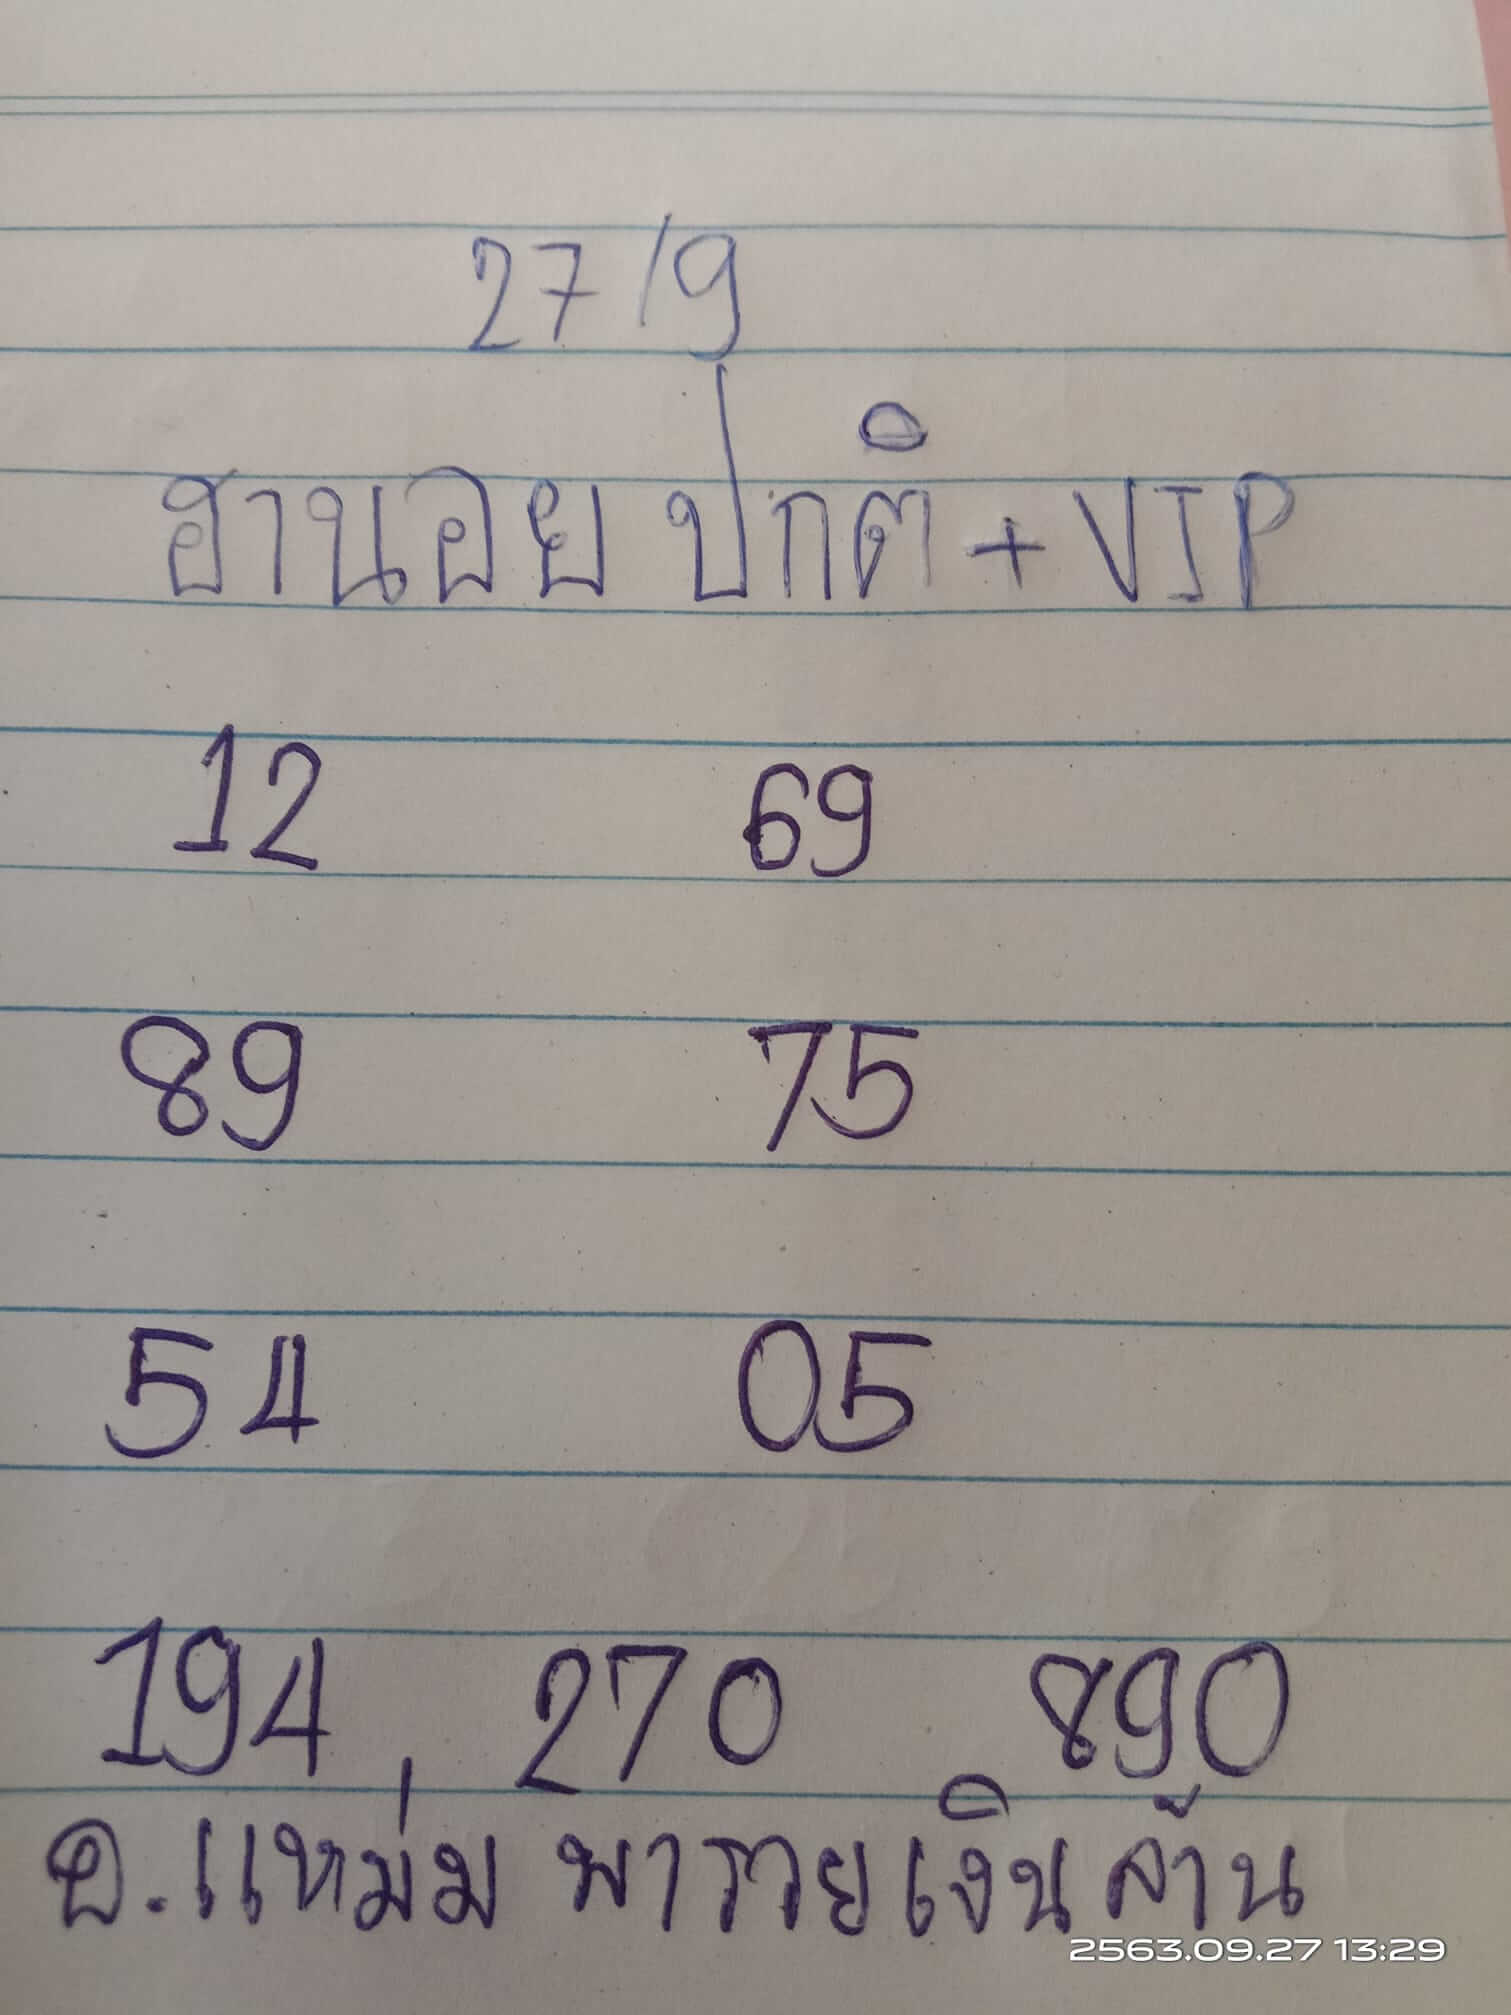 27/9
ฮานอย ปกติ + VIP
12 69
89 75
54 05
194, 270 890
อ.แหม่ม พารวยเงินล้าน
2563.09.27 13:29